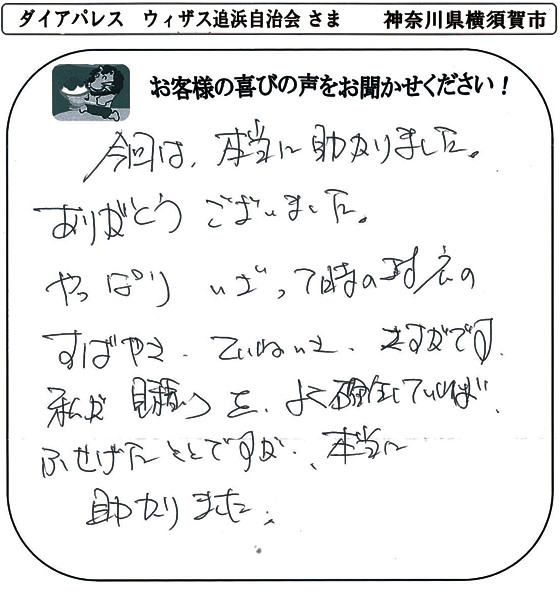 ダイアパレス ウィザス追浜自治会 さま 神奈川県横須賀市
お客様の喜びの声をお聞かせください！
今回は、本当に助かりました。
ありがとうございました。
やっぱりいざって時の対応の
すばやさ、ていねいさ、さすがです。
私が見積りを、よく確認していれば、
ふせげたことですが、本当に
助かりました。